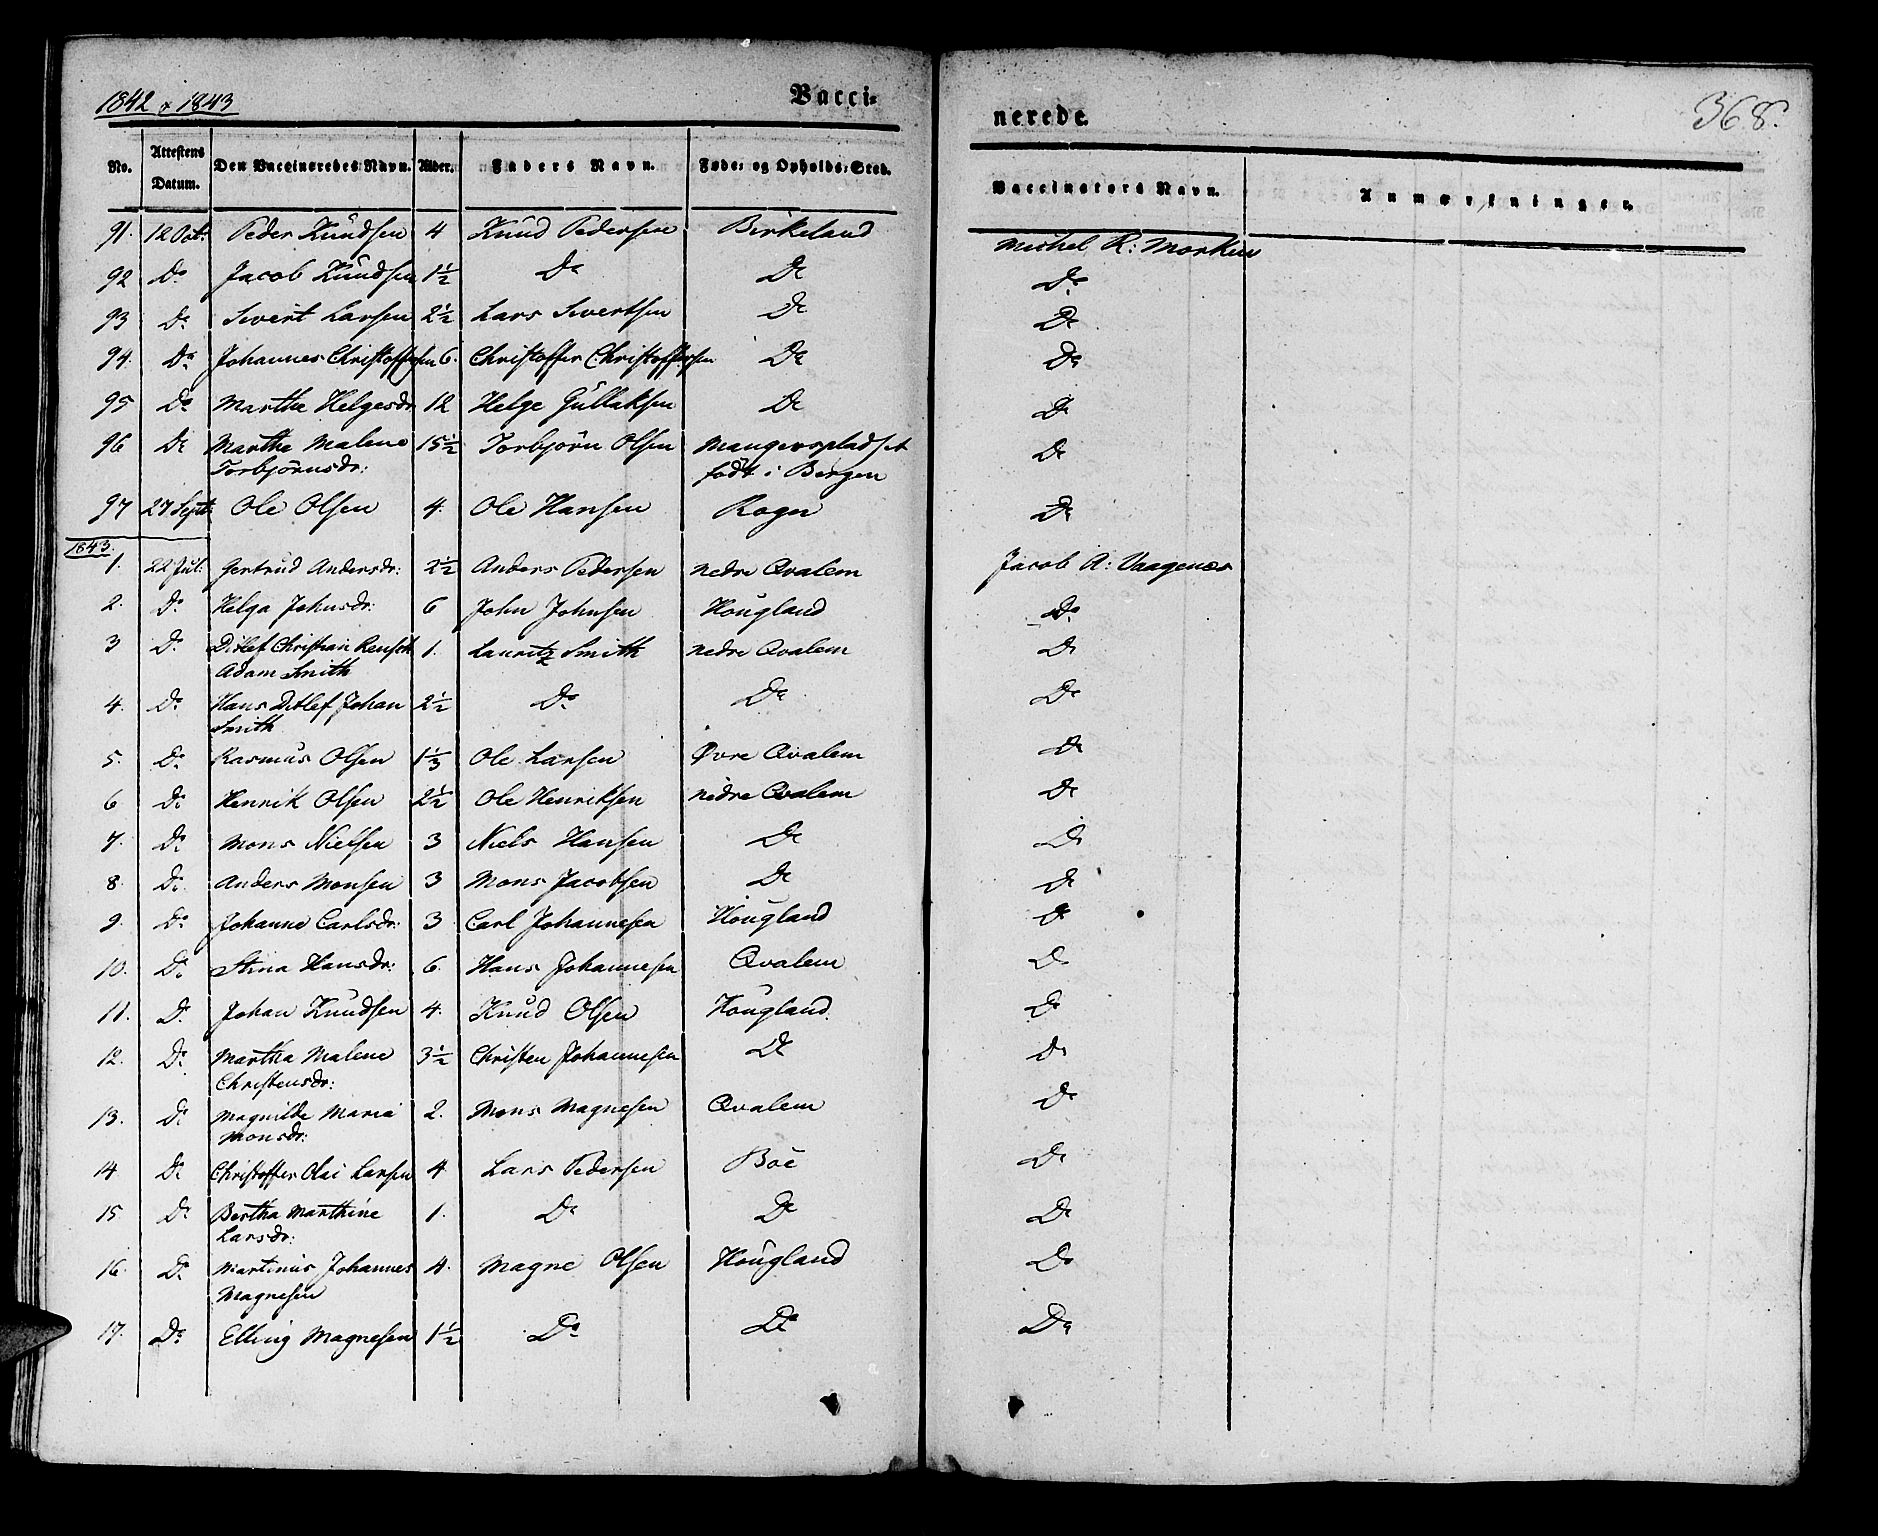 1842 & 1843
Vacci=
nerede.
368.
No. Attestens Datum. Den Vaccineredes Navn. Alder. Faders Navn. Føde= og Opholds=Sted. Vaccinators Navn. Anmærkninger.
91. 12 Oct: Peder Knudsen 4 Knud Pedersen Birkeland Michel R: Morken
92 Do Jacob Knudsen 1½ Do Do Do
93 Do Sivert Larsen 2½ Lars Sivertsen Do Do
94. Do Johannes Christoffersen 6. Christoffer Christoffersen Do Do
95 Do Martha Helgesdr. 12 Helge Gullaksen Do Do
96 Do Martha Malene 15½ Torbjörn Olsen Mangerspladset Do
Torbjörnsdr: født i Bergen
97 27 Sept: Ole Olsen 4. Ole Hansen Roger Do
1843.
1. 22 Jul: Gertrud Andersdr: 2½ Anders Pedersen nedre Qvalem Jacob A: Vaagenes
2. Do Helga Johnsdr: 6 John Johnsen Hougland Do
3 Do Ditlef Christian 1. Lauritz Smith nedre Qvalem Do
Adam Smith
4. Do Hans Ditlef Johan 2½ Do Do Do
Smith
5. Do Rasmus Olsen 1⅓ Ole Larsen Øvre Qvalem Do
6 Do Henrik Olsen 2½ Ole Henriksen nedre Qvalem Do
7. Do Mons Nielsen 3 Niels Hansen Do Do
8. Do Anders Monsen 3 Mons Jacobsen Do Do
9. Do Johanne Carlsdr: 3 Carl Johannesen Hougland Do
10. Do Stina Hansdr: 6. Hans Johannesen Qvalem Do
11. Do Johan Knudsen 4. Knud Olsen Hougland. Do
12. Do Martha Malene 3½ Christen Johannesen Do Do
Christensdr:
13. Do Magnilde Maria 2. Mons Magnesen Qvalem Do
Monsdr:
14 Do Christoffer Olai Larsen 4 Lars Pedersen Böe Do
15 Do Bertha Marthine 1. Do Do Do
Larsdr:
16. Do Martinus Johannes 4. Magne Olsen Hougland Do
Magnesen
17. Do Elling Magnesen 1½ Do Do Do